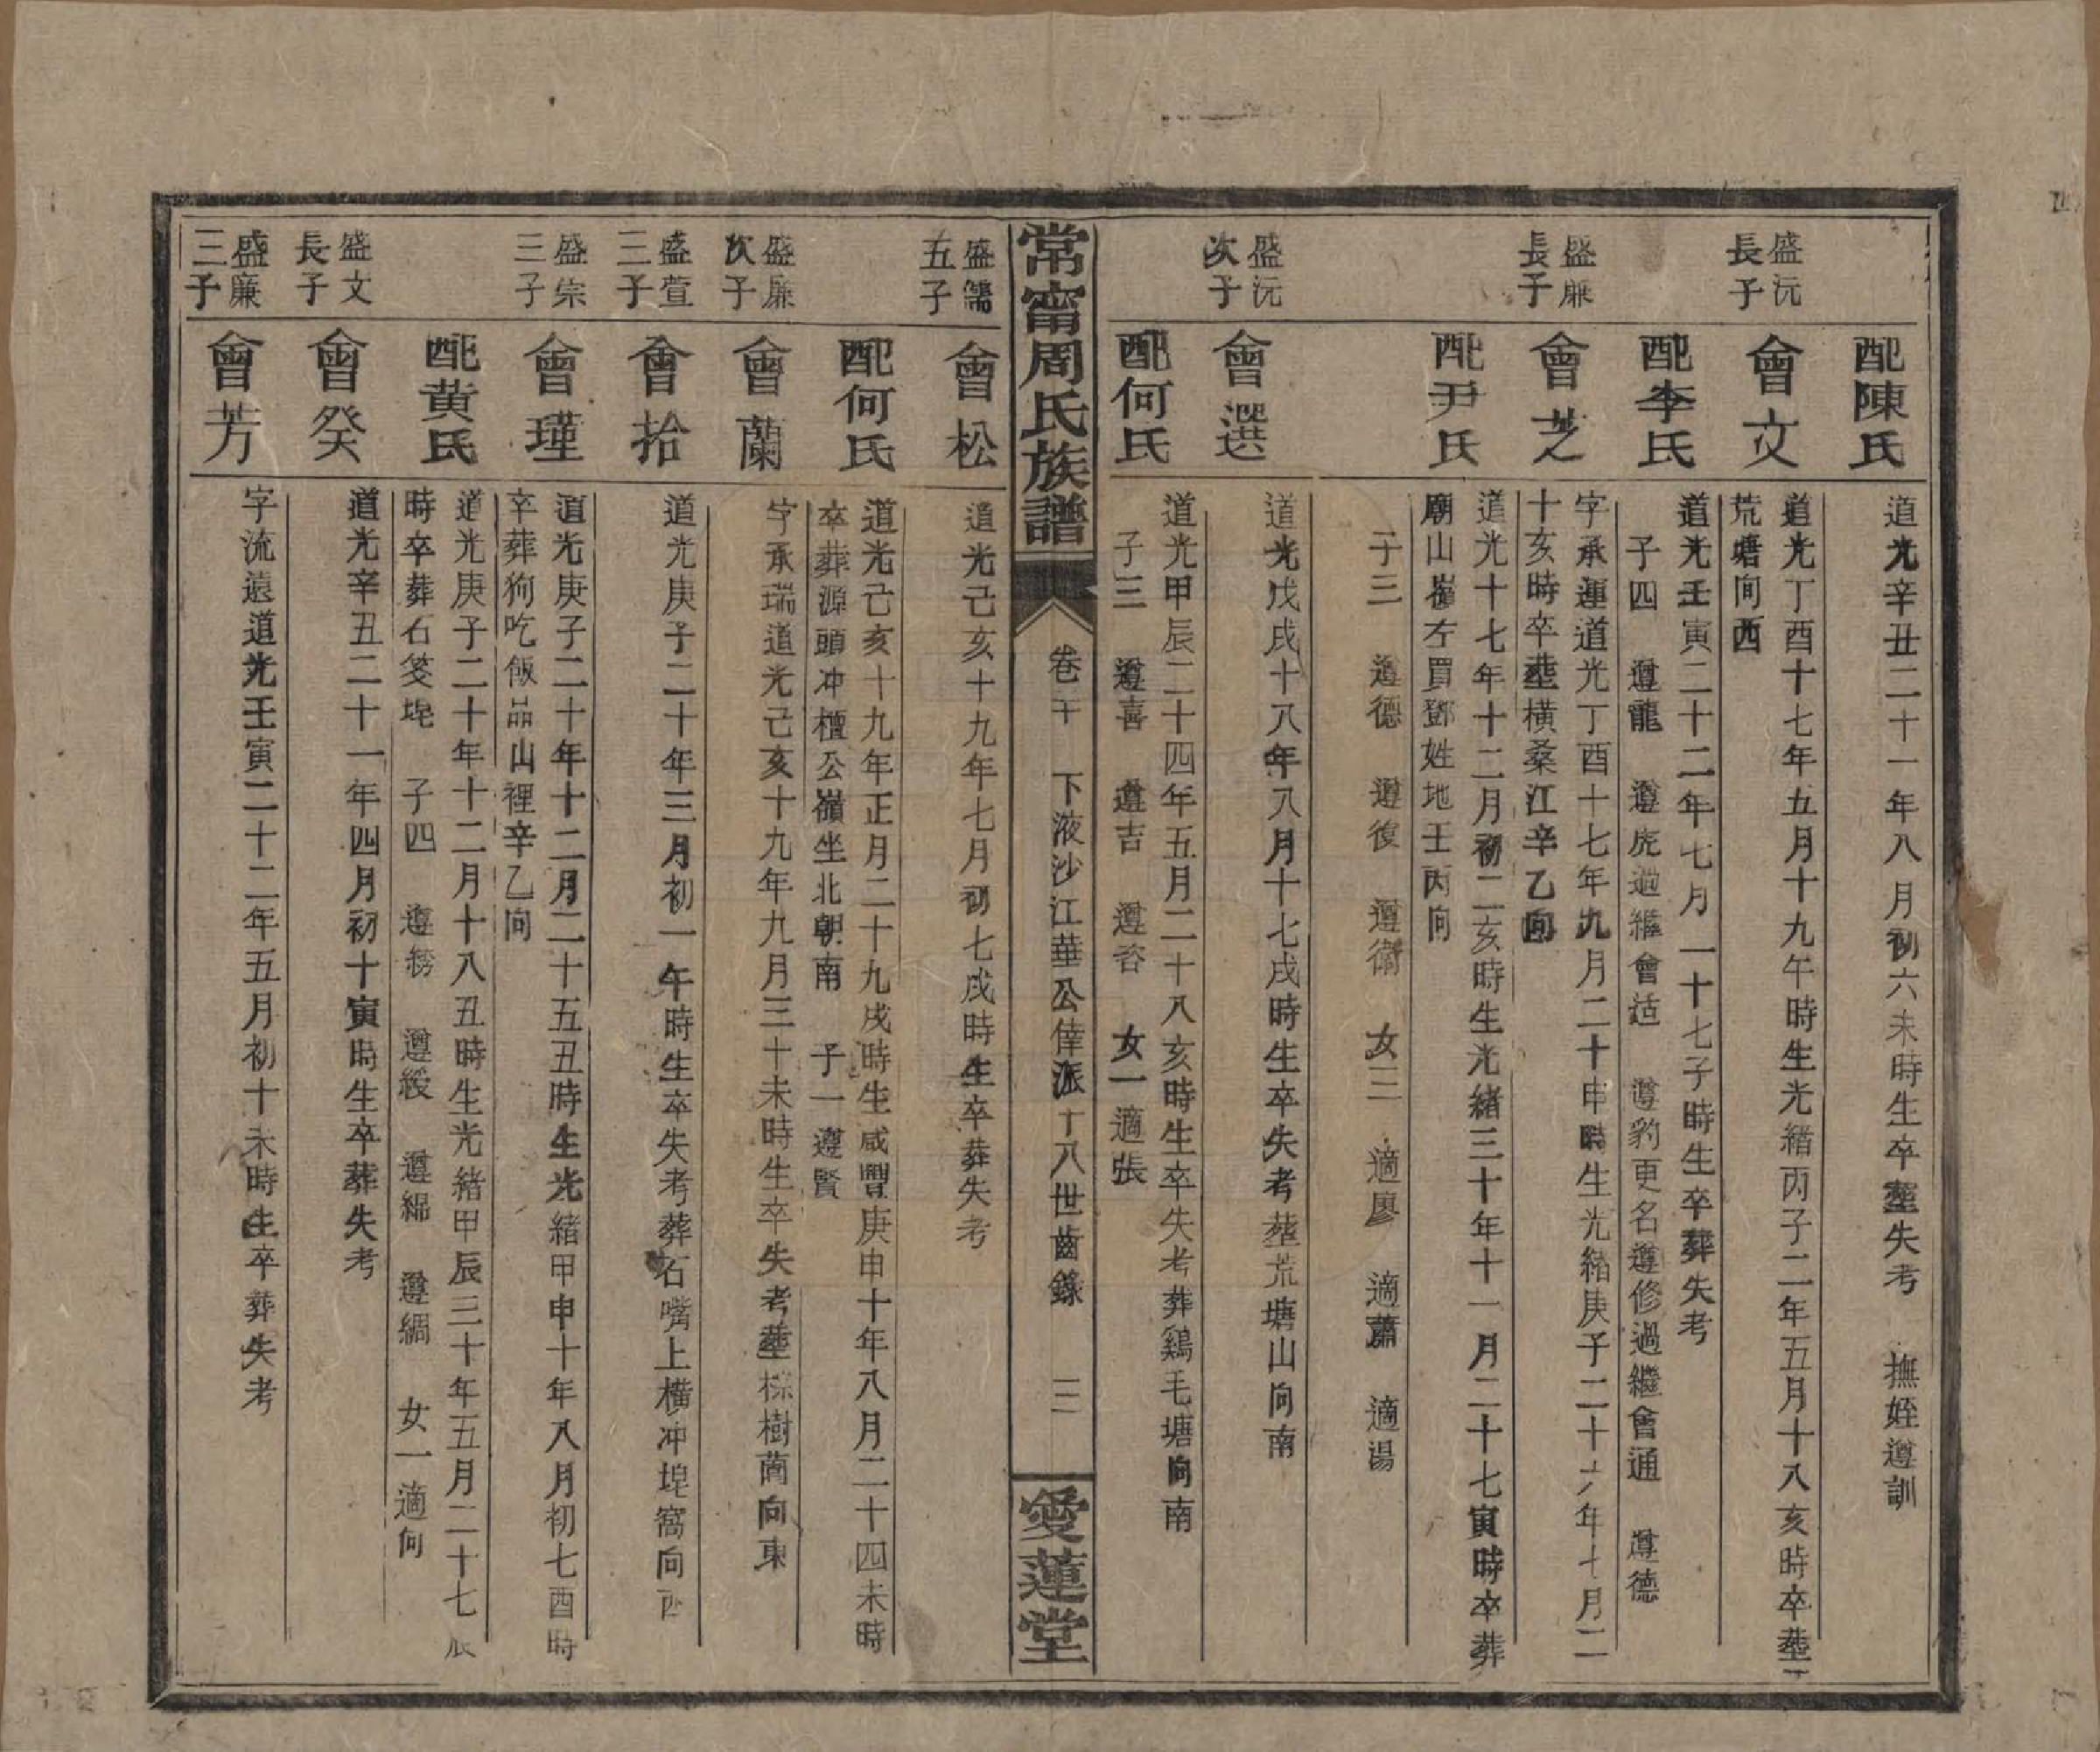 配陳氏
道光辛丑二十一年八月初六未時生卒塟失考 撫姪遵訓
盛沅長子
會文
道光丁酉十七年五月十九午時生光緒丙子二年五月十八亥時卒塟
荒塘向西
配李氏
道光壬寅二十二年七月一十七子時生卒葬失考
子四 遵龍 遵虎過繼會适 遵豹更名遵修過繼會通 遵德
盛廉長子
會芝
字承運道光丁酉十七年九月二十申時生光緒庚子二十六年七月二
十亥時卒塟橫桑江辛乙向
配尹氏
道光十七年十二月初二亥時生光緒三十年十一月二十七寅時卒葬
廟山嶺左買鄧姓地壬丙向
子三 遵德 遵復 遵衛 女三 適廖 適蕭 適湯
盛沅次子
會選
道光戊戌十八年八月十七戌時生卒失考塟荒塘山向南
配何氏
道光甲辰二十四年五月二十八亥時生卒失考葬鷄毛塘向南
子三 遵喜 遵吉 遵咨 女一適張
常甯周氏族譜
卷十 下液沙江華公俸派十八世齒錄 三
愛蓮堂
盛儒五子
會松
道光己亥十九年七月初七戌時生卒葬失考
配何氏
道光己亥十九年正月二十九戌時生咸豐庚申十年八月二十四未時
卒葬源頭冲檀公嶺坐北朝南 子一遵賢
盛廉次子
會蘭
字承瑞道光己亥十九年九月三十未時生卒失考塟棕樹崗向東
盛萱三子
會拾
道光庚子二十年三月初一午時生卒失考葬石嘴上橫冲垉窩向西
盛宗三子
會瑾
道光庚子二十年十二月二十五丑時生光緒甲申十年八月初七酉時
卒葬狗吃飯品山裡辛乙向
配黄氏
道光庚子二十年十二月十八丑時生光緒甲辰三十年五月二十七辰
時卒葬石筊垉 子四 遵務 遵綏 遵綿 遵綢 女一適何
盛文長子
會癸
道光辛丑二十一年四月初十寅時生卒葬失考
盛廉三子
會芳
字流遠道光壬寅二十二年五月初十未時生卒葬失考